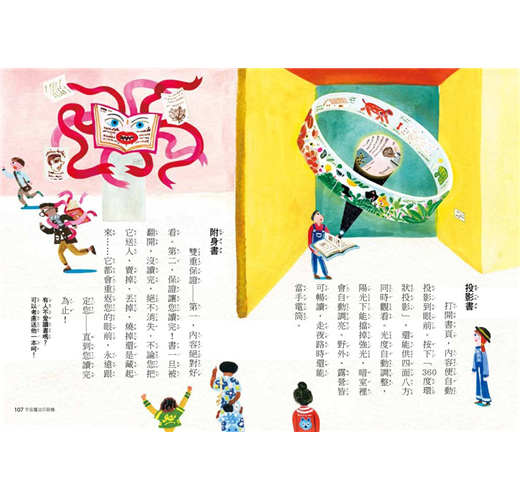 投影書
打開書頁，內容便自動
投影到眼前。按下「360度環
狀投影」，還能供四面八方
同時觀看。光度自動調整，
陽光下能擋掉強光，暗室裡
會自動調亮。野外、露營皆
可暢讀，走夜路時還能
當手電筒。
附身書
雙重保證——第一，內容絕對好
看。第二，保證讓您讀完！書一旦被
翻開，沒讀完，絕不消失。不論您把
它送人、賣掉、丟掉、燒掉還是藏起
來……它都會重返您的眼前，永遠跟
定您——直到您讀完
為止！
有人不愛讀書嗎？
可以考慮送他一本呵！
107 宇宙魔法印刷機